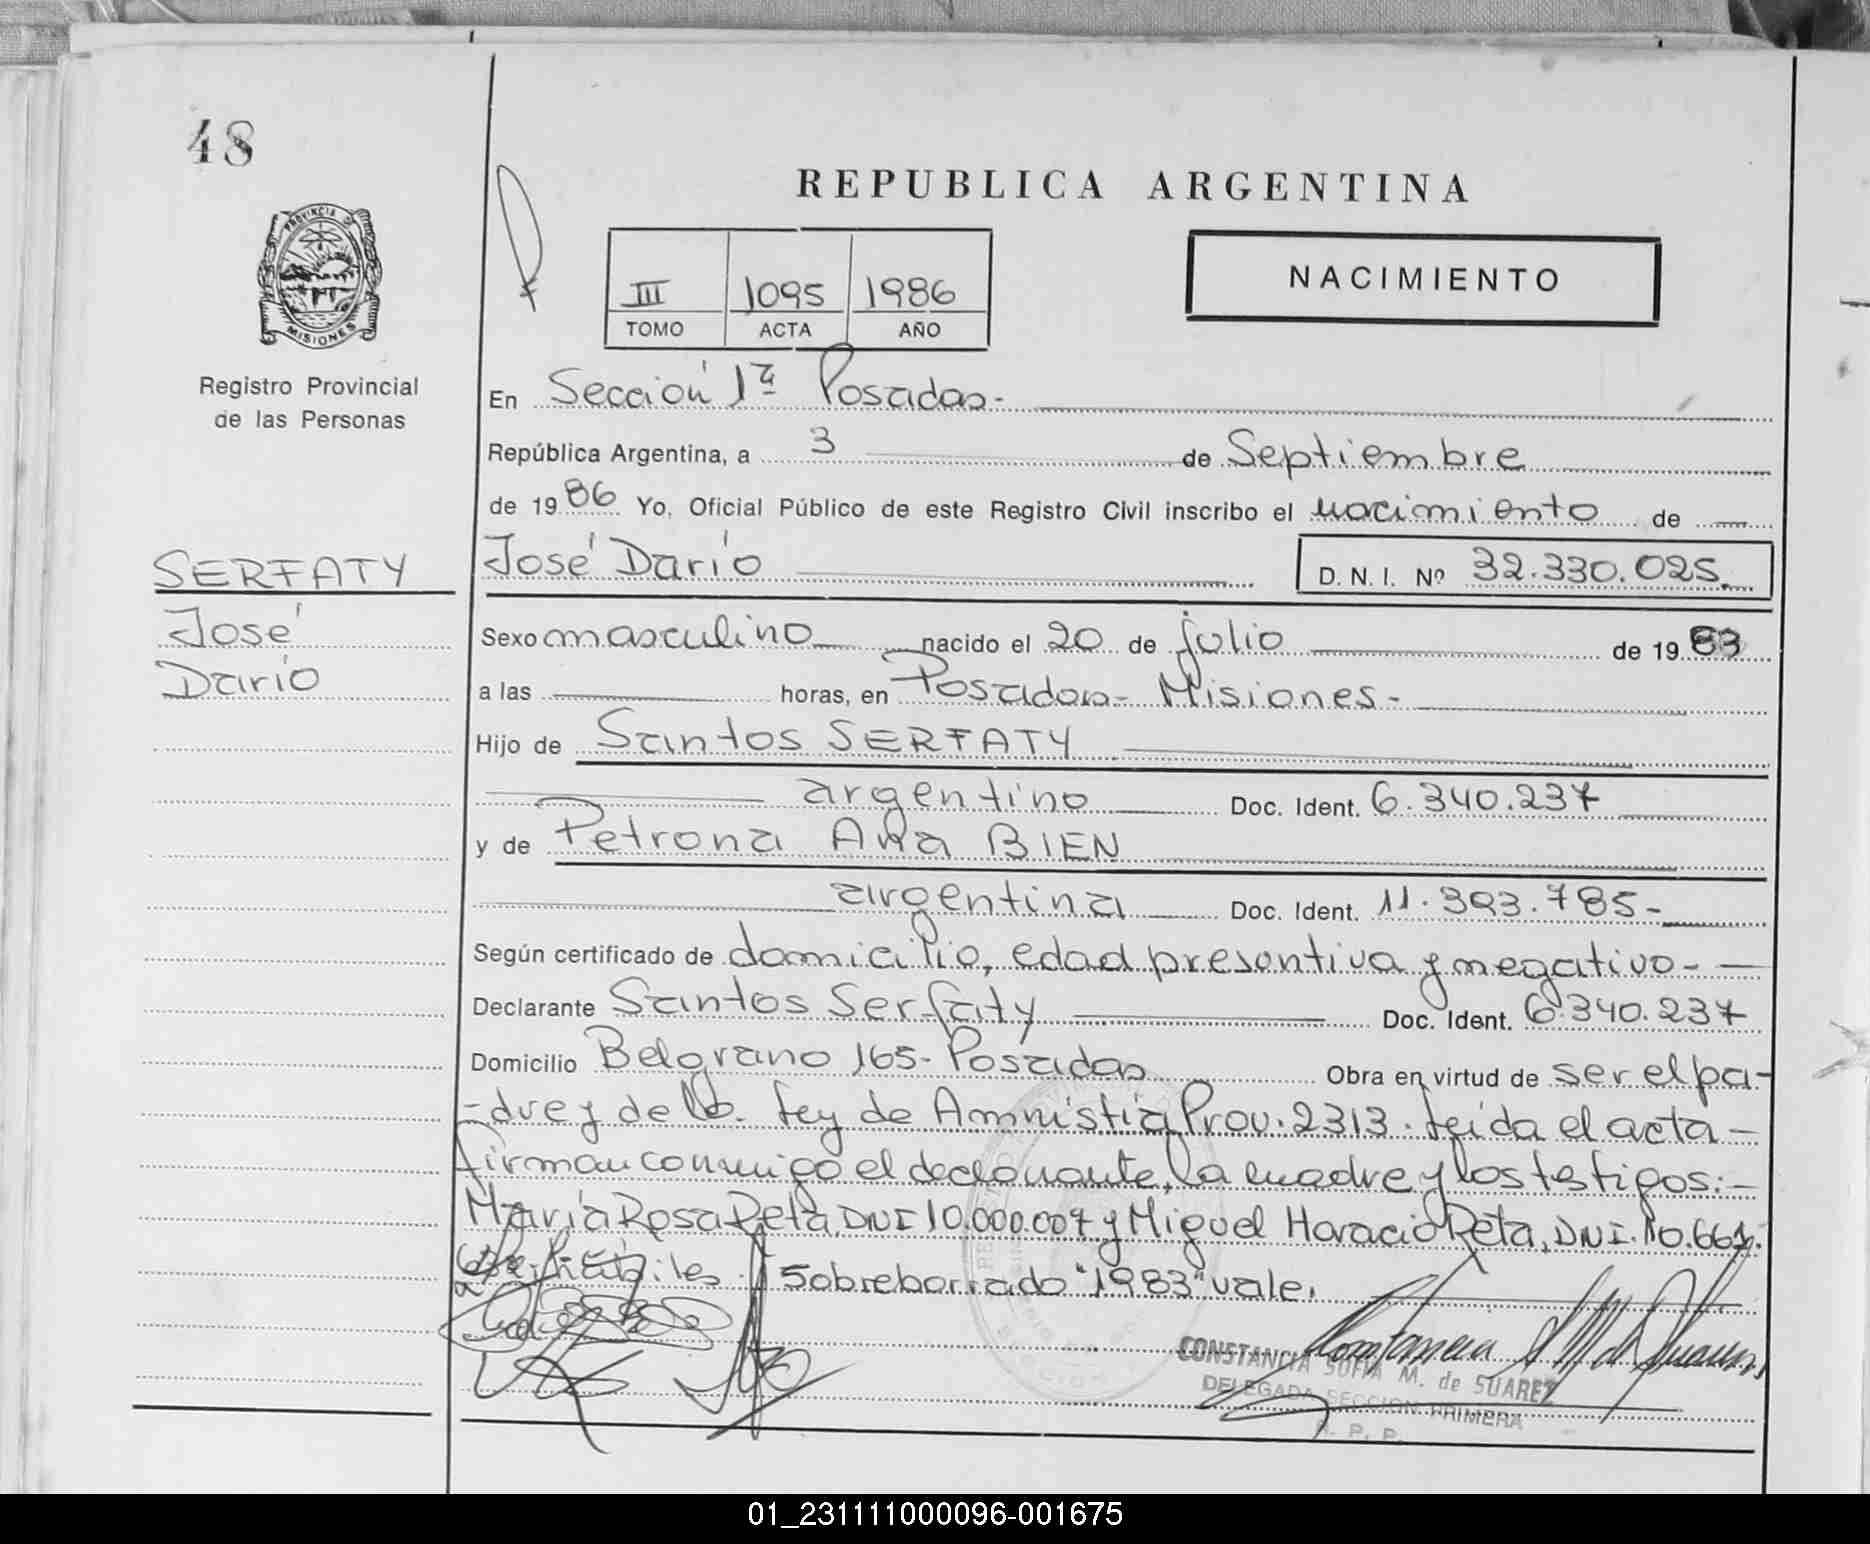 48
REPUBLICA ARGENTINA
PROVINCIA DE
MISIONES
III 1095 1986
TOMO ACTA AÑO
NACIMIENTO
Registro Provincial
de las Personas
En Sección 1ª Posadas-
República Argentina, a 3 de Septiembre
de 1986 Yo, Oficial Público de este Registro Civil inscribo el nacimiento de
SERFATY
José
Darío
José Darío D. N. I. Nº 32.330.025.
Sexo masculino nacido el 20 de julio de 1983
a las horas, en Posadas- Misiones-
Hijo de Santos SERFATY
argentino Doc. Ident. 6.340.237
y de Petrona Ana BIEN
argentina Doc. Ident. 11.393.785-
Según certificado de domicilio, edad presontiva y negativo-
Declarante Santos Serfaty Doc. Ident. 6.340.237
Domicilio Belgrano 165- Posadas Obra en virtud de ser el pa-
-dre y de lo. Ley de Amnistía Prov. 2313. Leída el acta-
firman conmigo el declarante, la madre y los testigos:-
María Rosa Reta, DNI 10.000.007 y Miguel Horacio Reta, DNI. 10.661.
Sobreborrado "1983" vale.
CONSTANCIA SOFIA M. de SUAREZ
DELEGADA SECCION PRIMERA
R. P. P.
01_231111000096-001675